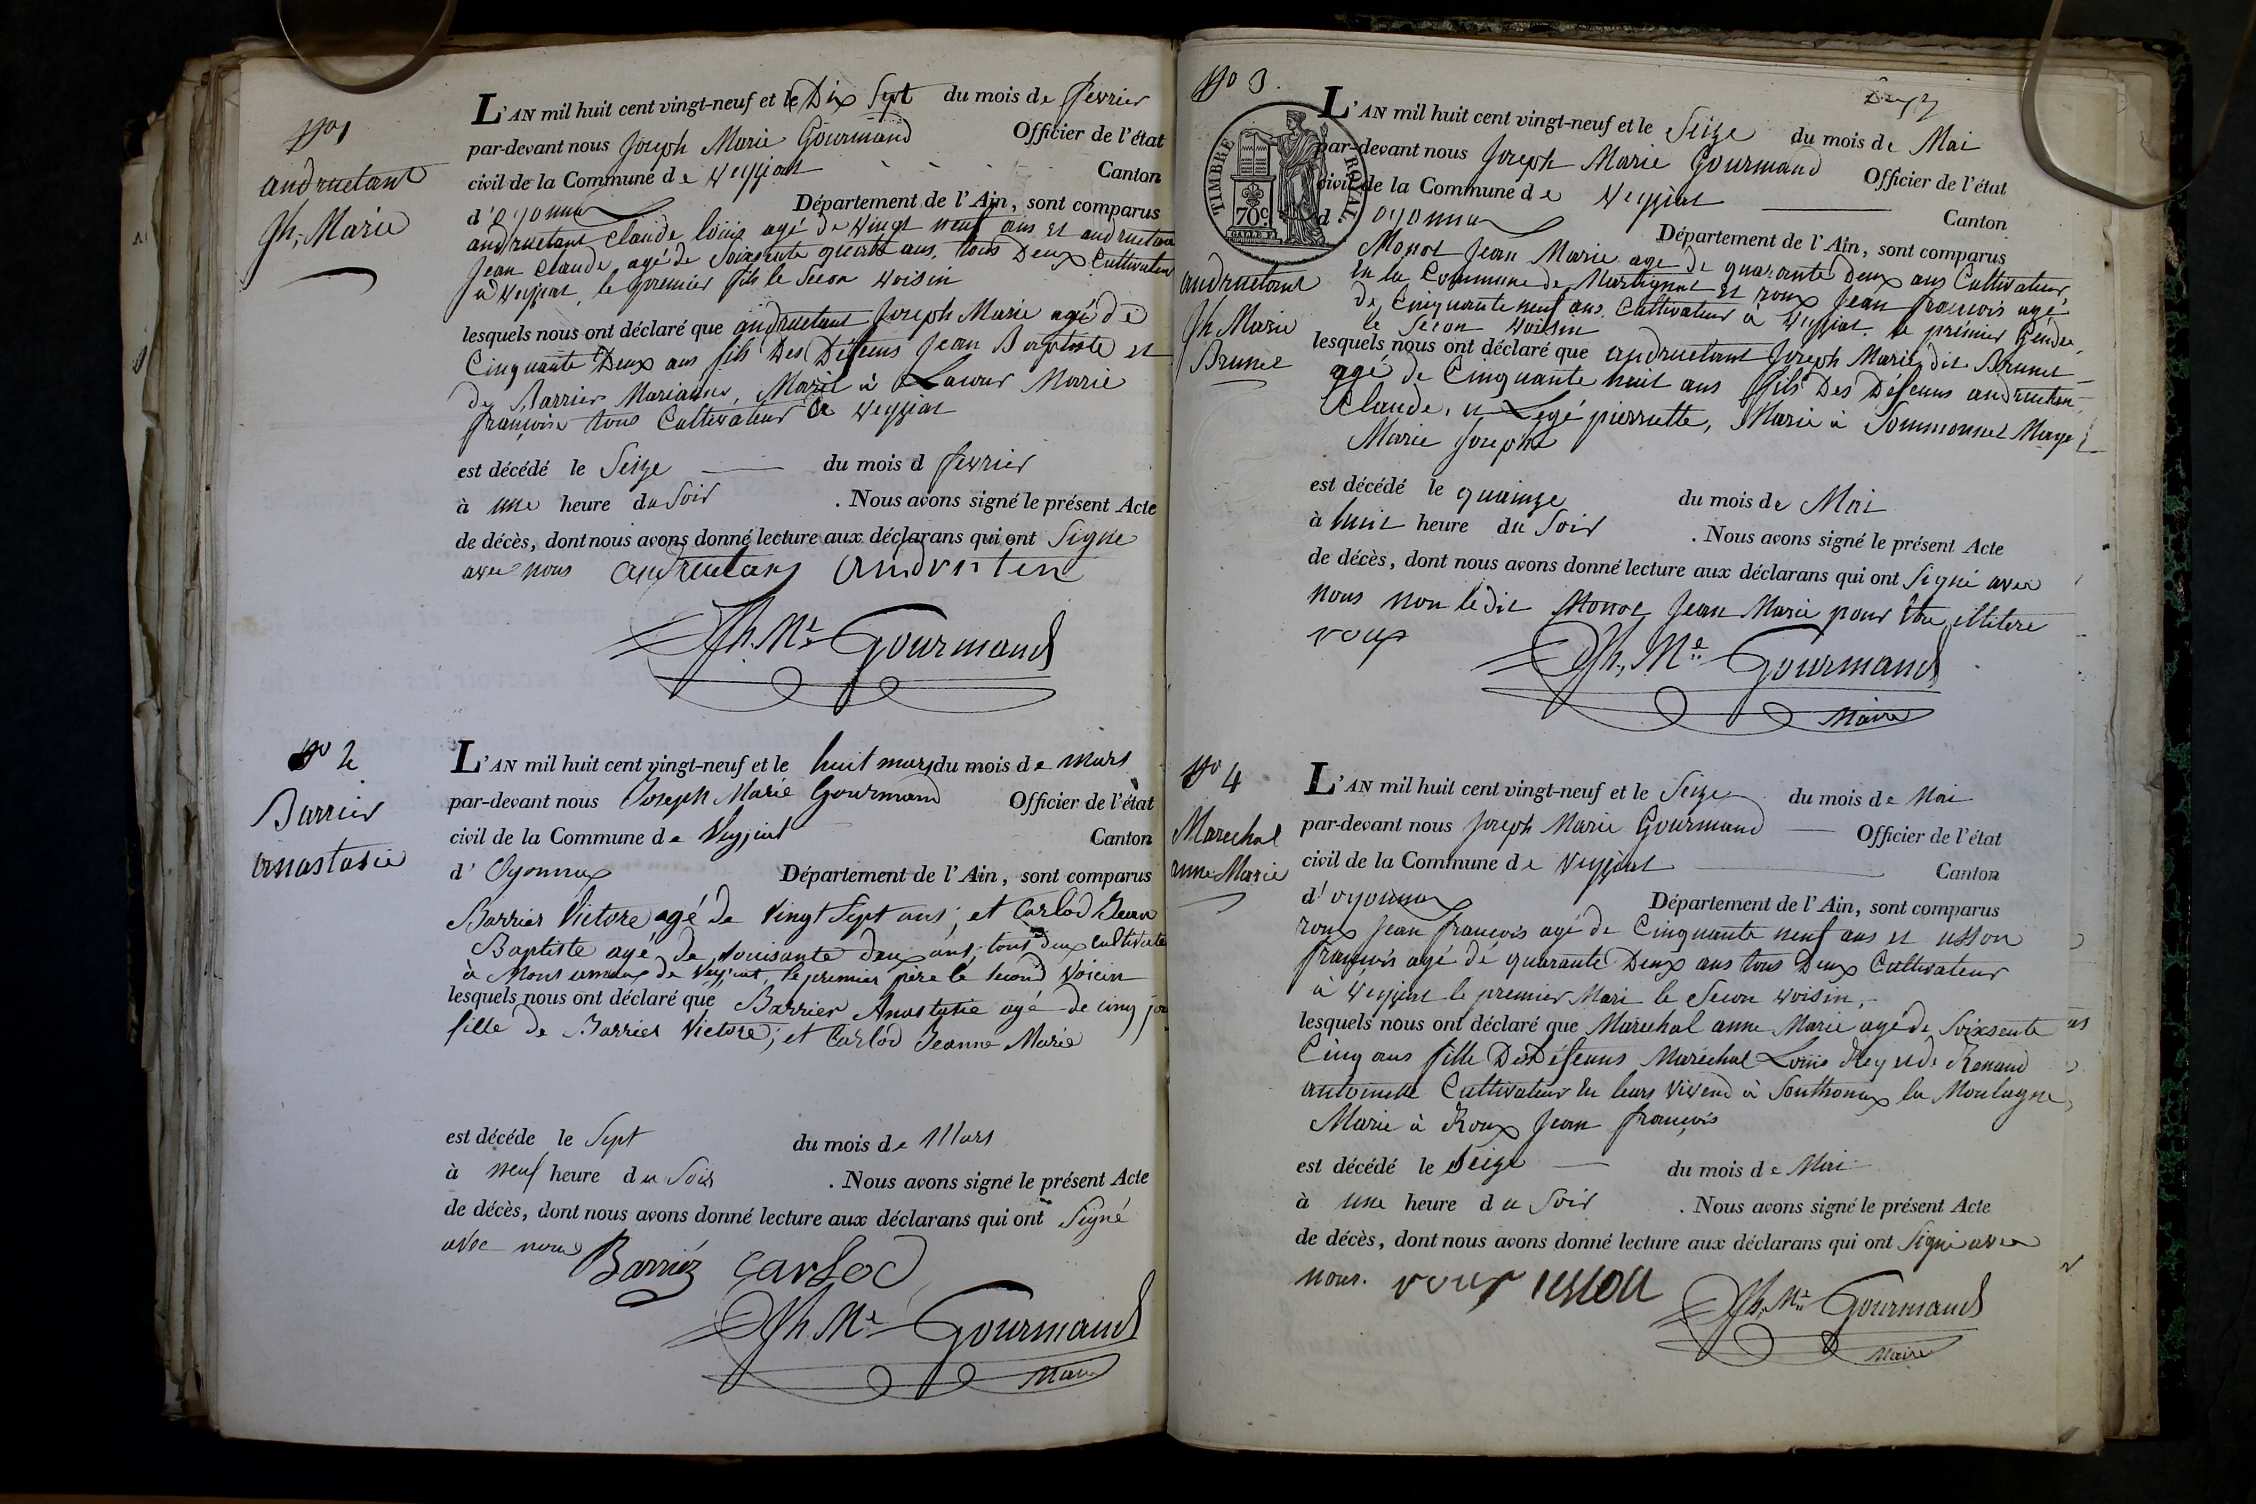 No 1
andruetant
Jh. Marie
L'AN mil huit cent vingt-neuf et le Dix Sept du mois de fevrier
par-devant nous Joseph Marie Gourmand Officier de l'état
civil de la Commune de Veyziat Canton
d'oyonnax Département de l'Ain, sont comparus
andruetant Claude louis agé de vingt neuf ans et andruetan
Jean Claude agé de Soixsente quatre ans, tous Deux Cultivateur
a Veyziat, le premier fils le Secon voisin
lesquels nous ont déclaré que andruetant Joseph Marie agé de
Cinquante Deux ans fils Des Défeuns Jean Baptiste et
de Barrier Marianne, Marié à Lacour Marie
françoise tous Cultivateur a Veyziat
est décédé le Seize du mois d fevrier
à une heure du Soir . Nous avons signé le présent Acte
de décès, dont nous avons donné lecture aux déclarans qui ont Signe
avec nous andruetans
Jh. Me Gourmand
No 2
Barrier
anastasie
L'AN mil huit cent vingt-neuf et le huit mars du mois de mars
par-devant nous Joseph Marie Gourmand Officier de l'état
civil de la Commune de Veyziat Canton
d' Oyonnax Département de l'Ain, sont comparus
Barrier Victore agé de vingt Sept ans, et Carlod Jean
Baptiste agé de souisante deux ans, tous deux cultivate
à Mons de Veyziat, le premier père le second voicin
lesquels nous ont déclaré que Barrier Anastasie agé de cinq jou
fille de Barrier Victore; et Carlod Jeanne Marie
est décéde le Sept du mois de Mars
à neuf heure du Soir . Nous avons signé le présent Acte
de décès, dont nous avons donné lecture aux déclarans qui ont Signé
avec nous Barriéz carloD
Jh. Me Gourmand
Maire
No 3.
TIMBRE ROYAL.
70c
andruetant
Jh Marie
Brunet
L'AN mil huit cent vingt-neuf et le Seize du mois de Mai
par-devant nous Joseph Marie Gourmand Officier de l'état
civil de la Commune de Veyziat Canton
d oyonnax Département de l'Ain, sont comparus
Monot Jean Marie agé de quarante Deux ans Cultivateur
En la Commune de Martignat et roux Jean françois agé
de Cinquante neuf ans Cultivateur a Veyziat le prémier Gendre,
le Secon voisin
lesquels nous ont déclaré que andruetant Joseph Marie dit Brunet
agé de Cinquante huit ans fils Des Défeuns andruetan
Claude, et Legé pierrette, Marie à Sommonnet
Marie Josephe
est décédé le quainze du mois de Mai
à huit heure du Soir . Nous avons signé le présent Acte
de décès, dont nous avons donné lecture aux déclarans qui ont Signé avec
nous non ledit Monot Jean Marie pour être illitere
roux
Jh. Me Gourmand
Maire
No 4
Marechal
anne Marie
L'AN mil huit cent vingt-neuf et le Seize du mois de Mai
par-devant nous Joseph Marie Gourmand Officier de l'état
civil de la Commune de Veyziat Canton
d'oyonnax Département de l'Ain, sont comparus
roux Jean françois agé de Cinquante neuf ans et usson
françois agé de quarante Deux ans tous Deux Cultivateur
à Veyziat le premier Mari le Secon voisin,
lesquels nous ont déclaré que Marechal anne Marie agé de Soixsente
Cinq ans fille Des Défeuns Maréchal Louis Rey et de Renaud
antoinette Cultivateur En leurs Vivend à Sonthonnax la Montagne
Marie à Roux Jean françois
est décédé le Seize du mois de Mai
à une heure du Soir . Nous avons signé le présent Acte
de décès, dont nous avons donné lecture aux déclarans qui ont Signé avec
nous. roux usson
Jh. Me Gourmand
Maire